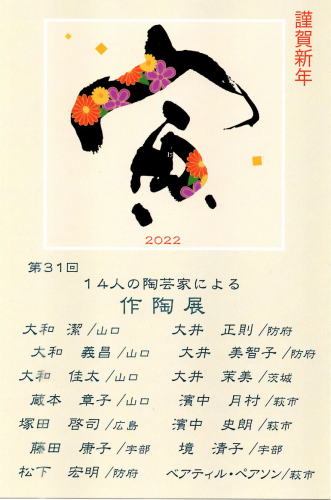 謹賀新年
寅
2022
第31回
14人の陶芸家による
作陶展
大和 潔/山口 大井 正則/防府
大和 義昌/山口 大井 美智子/防府
大和 佳太/山口 大井 茉美/茨城
蔵本 章子/山口 濱中 月村/萩市
塚田 啓司/広島 濱中 史朗/萩市
藤田 康子/宇部 境 清子/宇部
松下 宏明/防府 ベアティル・ペアソン/萩市